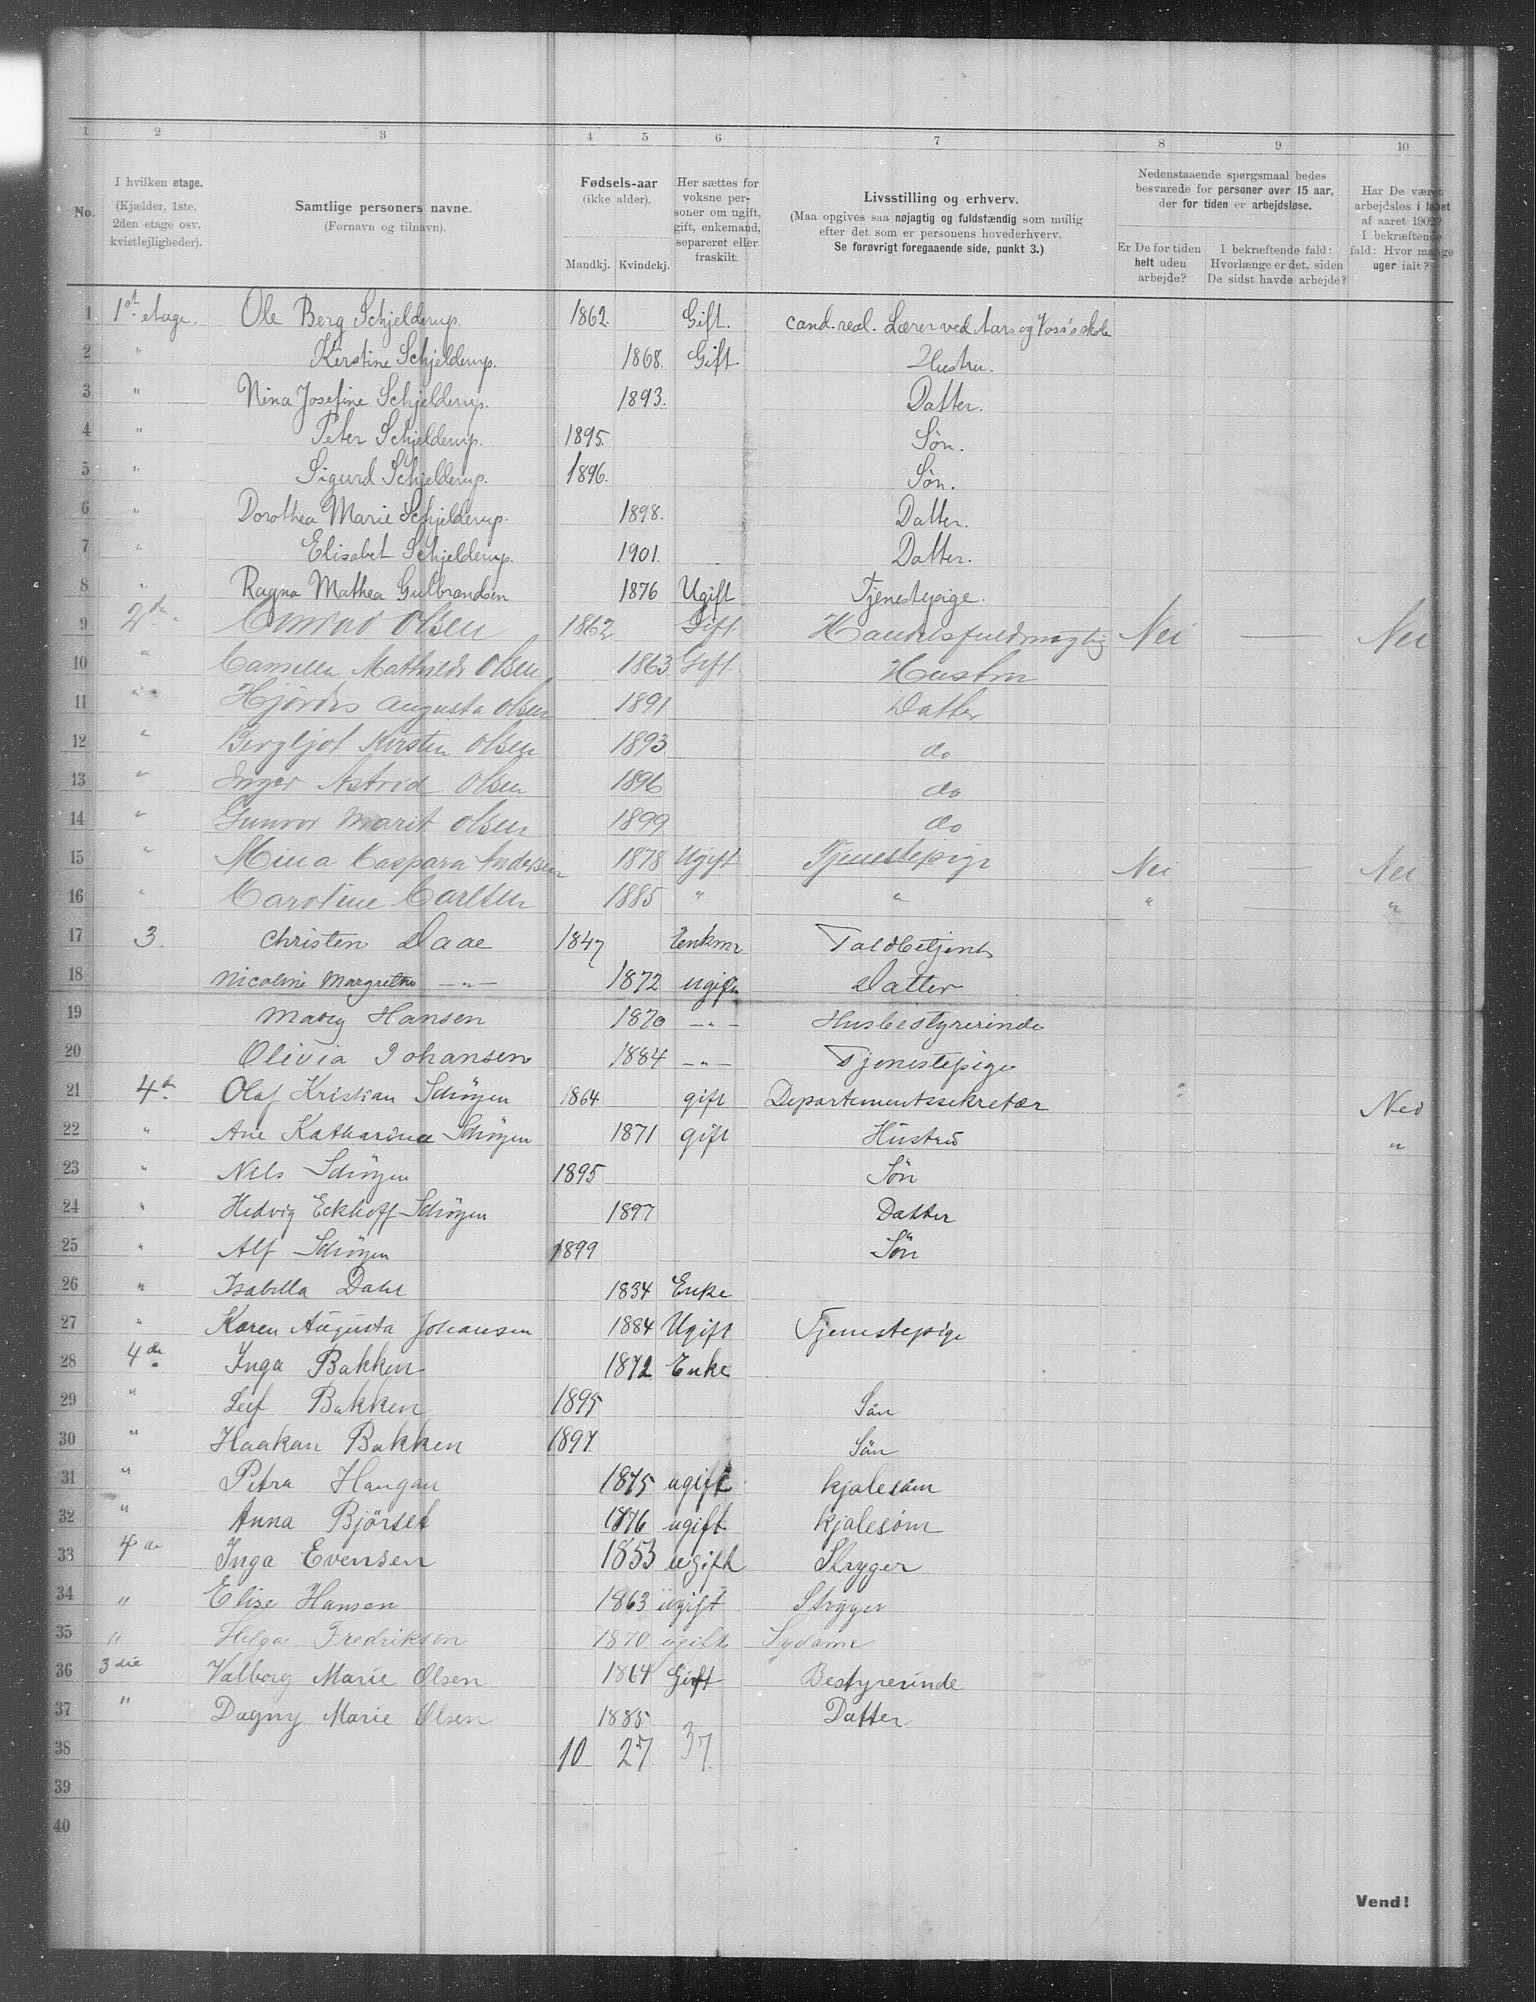 1 2 3 4 5 6 7 8 9 10
No.
I hvilken etage.
(Kjælder, 1ste,
2den etage osv.
kvistlejligheder).
Samtlige personers navne.
(Fornavn og tilnavn).
Fødsels-aar
(ikke alder).
Mandkj. Kvindekj.
Her sættes for
voksne per-
soner om ugift,
gift, enkemand,
separeret eller
fraskilt.
Livsstilling og erhverv.
(Maa opgives saa nøjagtig og fuldstændig som mulig
efter det som er personens hovederhverv.
Se forøvrigt foregaaende side, punkt 3.)
Nedenstaaende spørgsmaal bedes
besvarede for personer over 15 aar,
der for tiden er arbejdsløse.
Er De for tiden
helt uden
arbejde?
I bekræftende fald:
Hvorlænge er det, siden
De sidst havde arbejde?
Har De været
arbejdsløs i løbet
af aaret 1902?
I bekræftende
fald: Hvor mange
uger ialt?
1 1st etage. Ole Berg Schjelderup. 1862. Gift. cand. real. Lærer ved Aars og Voss's skole
2 " Kirstine Schjelderup. 1868. Gift. Hustru.
3 " Nina Josefine Schjelderup. 1893. Datter.
4 " Peter Schjelderup. 1895. Søn.
5 " Sigurd Schjelderup. 1896. Søn.
6 " Dorothea Marie Schjelderup. 1898. Datter.
7 " Elisabet Schjelderup. 1901. Datter.
8 " Ragna Mathea Gulbrandsen 1876 Ugift Tjenestepige.
9 2de Conrad Olsen 1862 Gift Handelsfuldmægtig Nei — Nei
10 " Camilla Mathilde Olsen 1863 Gift Hustru
11 " Hjördis Augusta Olsen 1891 Datter
12 " Bergljot Kirsten Olsen 1893 do
13 " Inger Astrid Olsen 1896 do
14 " Gunvor Marit Olsen 1899 do
15 " Mina Caspara Andersen 1878 Ugift Tjenestepige Nei — Nei
16 " Caroline Carlsen 1885 " " " — "
17 3 Christen Daae 1847 Enkm Toldbetjent
18 Nicoline Margrethe —"— 1872 ugift Datter
19 Mary Hansen 1870 —"— Husbestyrerinde
20 Olivia Johansen 1884 —"— Tjenestepige
21 4de Olaf Kristian Schrøyen 1864 gift Departementssekretær Nei
22 " Ane Katharina Schrøyen 1871 gift Hustru "
23 " Nils Schrøyen 1895 Sön
24 " Hedvig Eckhoff Schrøyen 1897 Datter
25 " Alf Schrøyen 1899 Sön
26 " Isabella Dahl 1834 Enke
27 " Karen Augusta Johansen 1884 Ugift Tjenestepige
28 4de Inga Bakken 1872 Enke
29 " Leif Bakken 1895 Sön
30 " Haakan Bakken 1897 Sön
31 " Petra Haugan 1875 ugift kjolesöm
32 " Anna Björset 1876 ugift kjolesöm
33 4de Inga Evensen 1853 ugift Stryger
34 " Elise Hansen 1863 ugift Stryger
35 " Helga Fredriksen 1870 ugift
36 3die Valborg Marie Olsen 1864 Gift Bestyrerinde
37 " Dagny Marie Olsen 1885 Datter
38 10 27 37
39
40
Vend!